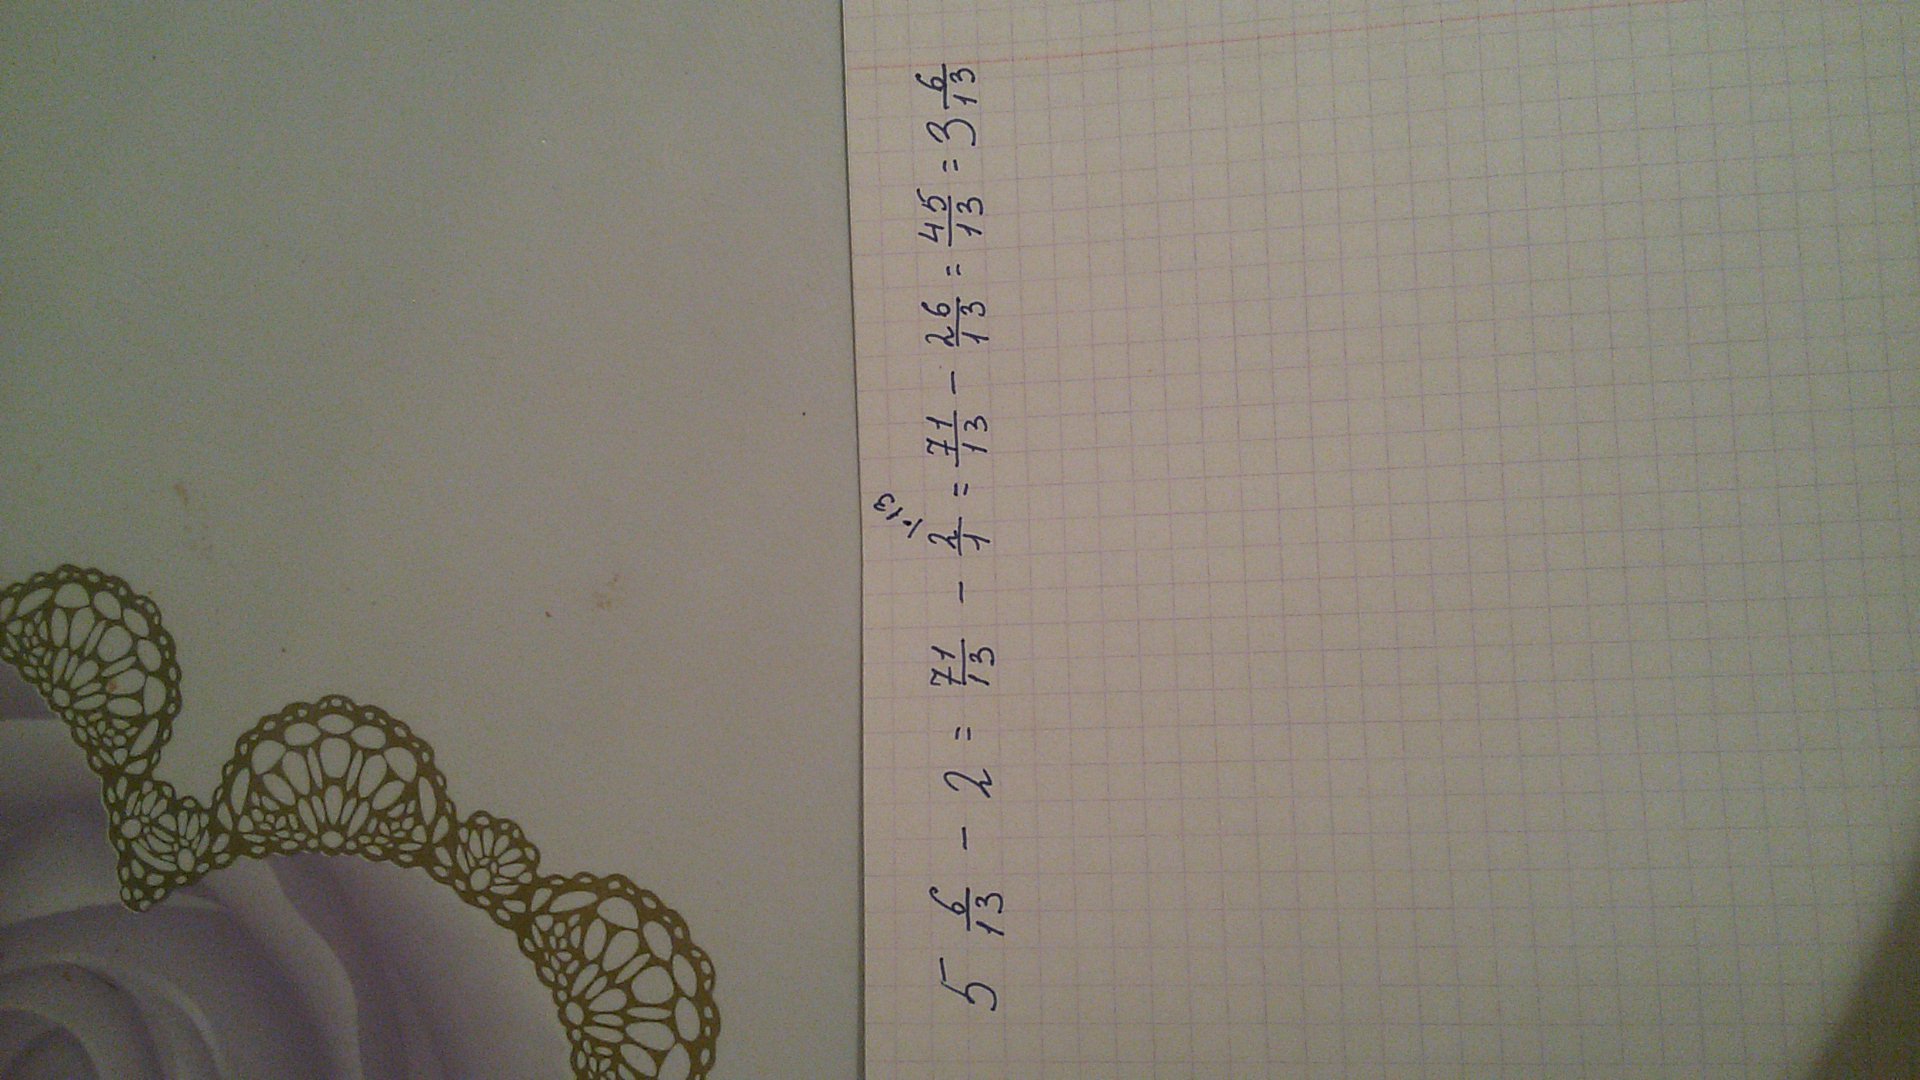 5 6/13 - 2 = 71/13 - 2/1 \·13 = 71/13 - 26/13 = 45/13 = 3 6/13